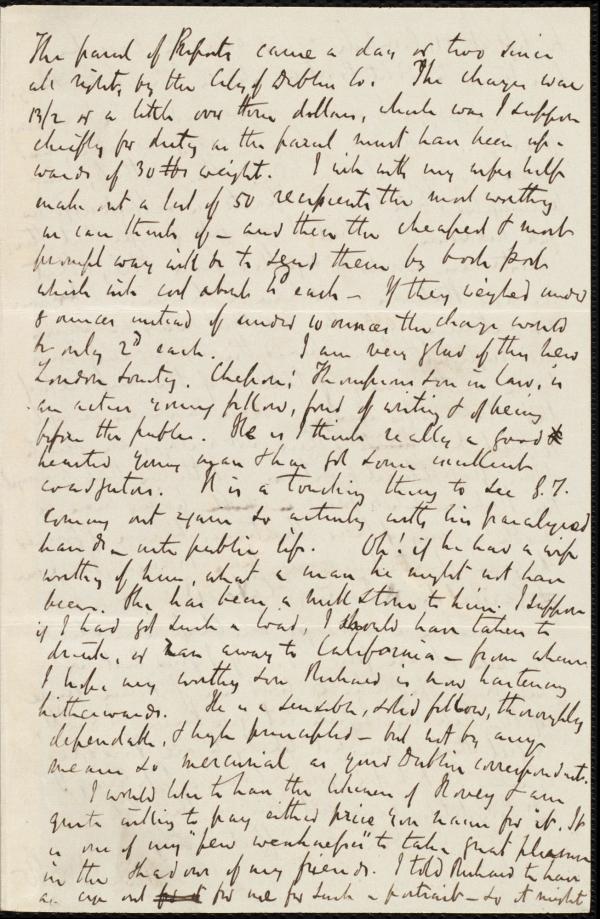 The parcel of Reports came a day or two since
all right, by the City of Dublin Co. The charge was
13/2 or a little over three dollars, which was I suppose
chiefly for duty as the parcel must have been up-
wards of 30 lbs weight. I will with my wife's help
make out a list of 50 recipients the most worthy
we can think of – and then the cheapest & most
prompt way will be to send them by book post
which will cost about 4d each – If they weighed under
8 ounces instead of under 10 ounces the charge would
be only 2d each. I am very glad of this new
London Society. Chesson, Thompson's son in law, is
an active young fellow, fond of writing & of being
before the public. He is I think really a good
hearted young man & has got some excellent
coadjutors. It is a touching thing to see G.T.
coming out again so actively with his paralyzed
hands – into public life. Oh! if he had a wife
worthy of him, what a man he might not have
been. She has been a millstone to him. I suppose
if I had got such a load, I should have taken to
drink, or ran away to California – from whence
I hope my worthy son Richard is now hastening
hitherwards. He is a sensible, solid fellow, thoroughly
dependable, & high principled – but not by any
means so mercurial as your Dublin correspondent.
I would like to have the likeness of Hovey & am
quite willing to pay either price you name for it. It
is one of my "few weaknesses" to take great pleasure
in the shadows of my friends. I told Richard to have
an eye out for me for such a portrait – so it might